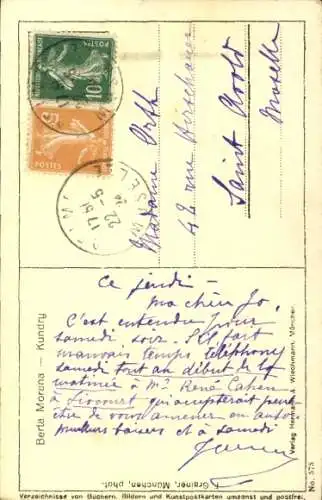 10
POSTES
5
POSTES
17 51
22 -5
Madame Orth
42 rue Hirschauer
Saint Avold
Moselle
Ce jeudi —
ma chère Jo,
C'est entendu pour
samedi soir. S'il fait
mauvais temps téléphone
samedi tout au début de la
matinée à Mr René Cahen
à Liocourt qui accepterait peut
être de vous amener en auto.
plusieurs baisers et à samedi
Berta Morena — Kundry
Verlag Hermann & Wiechmann, München.
Grainer, München, phot.
No. 575
Verzeichnisse von Büchern, Bildern und Kunstpostkarten umsonst und postfrei.